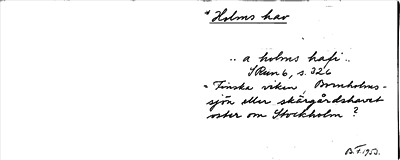 * Holms hav
.. a holms hafi ..
SRun 6, s. 326
= Finska viken, Bornholms-
sjön eller skärgårdshavet
öster om Stockholm ?
B. F. 1953.